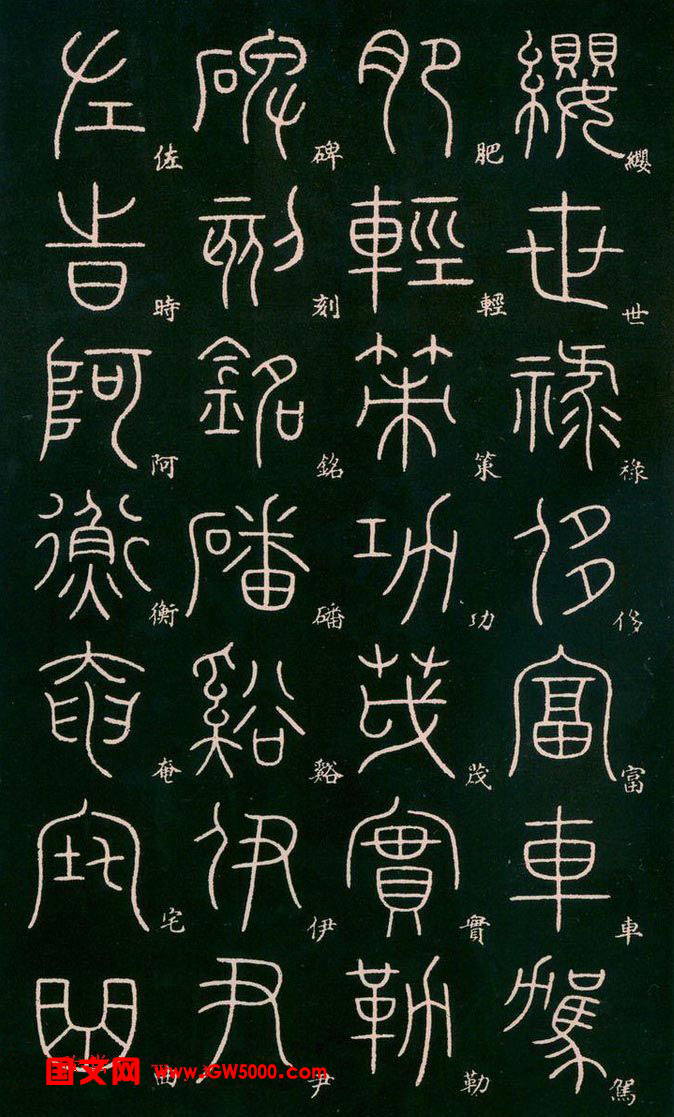 纓世祿侈富車駕
肥輕策功茂實勒
碑刻銘磻谿伊尹
佐時阿衡奄宅曲
国文网 www.JGW5000.com